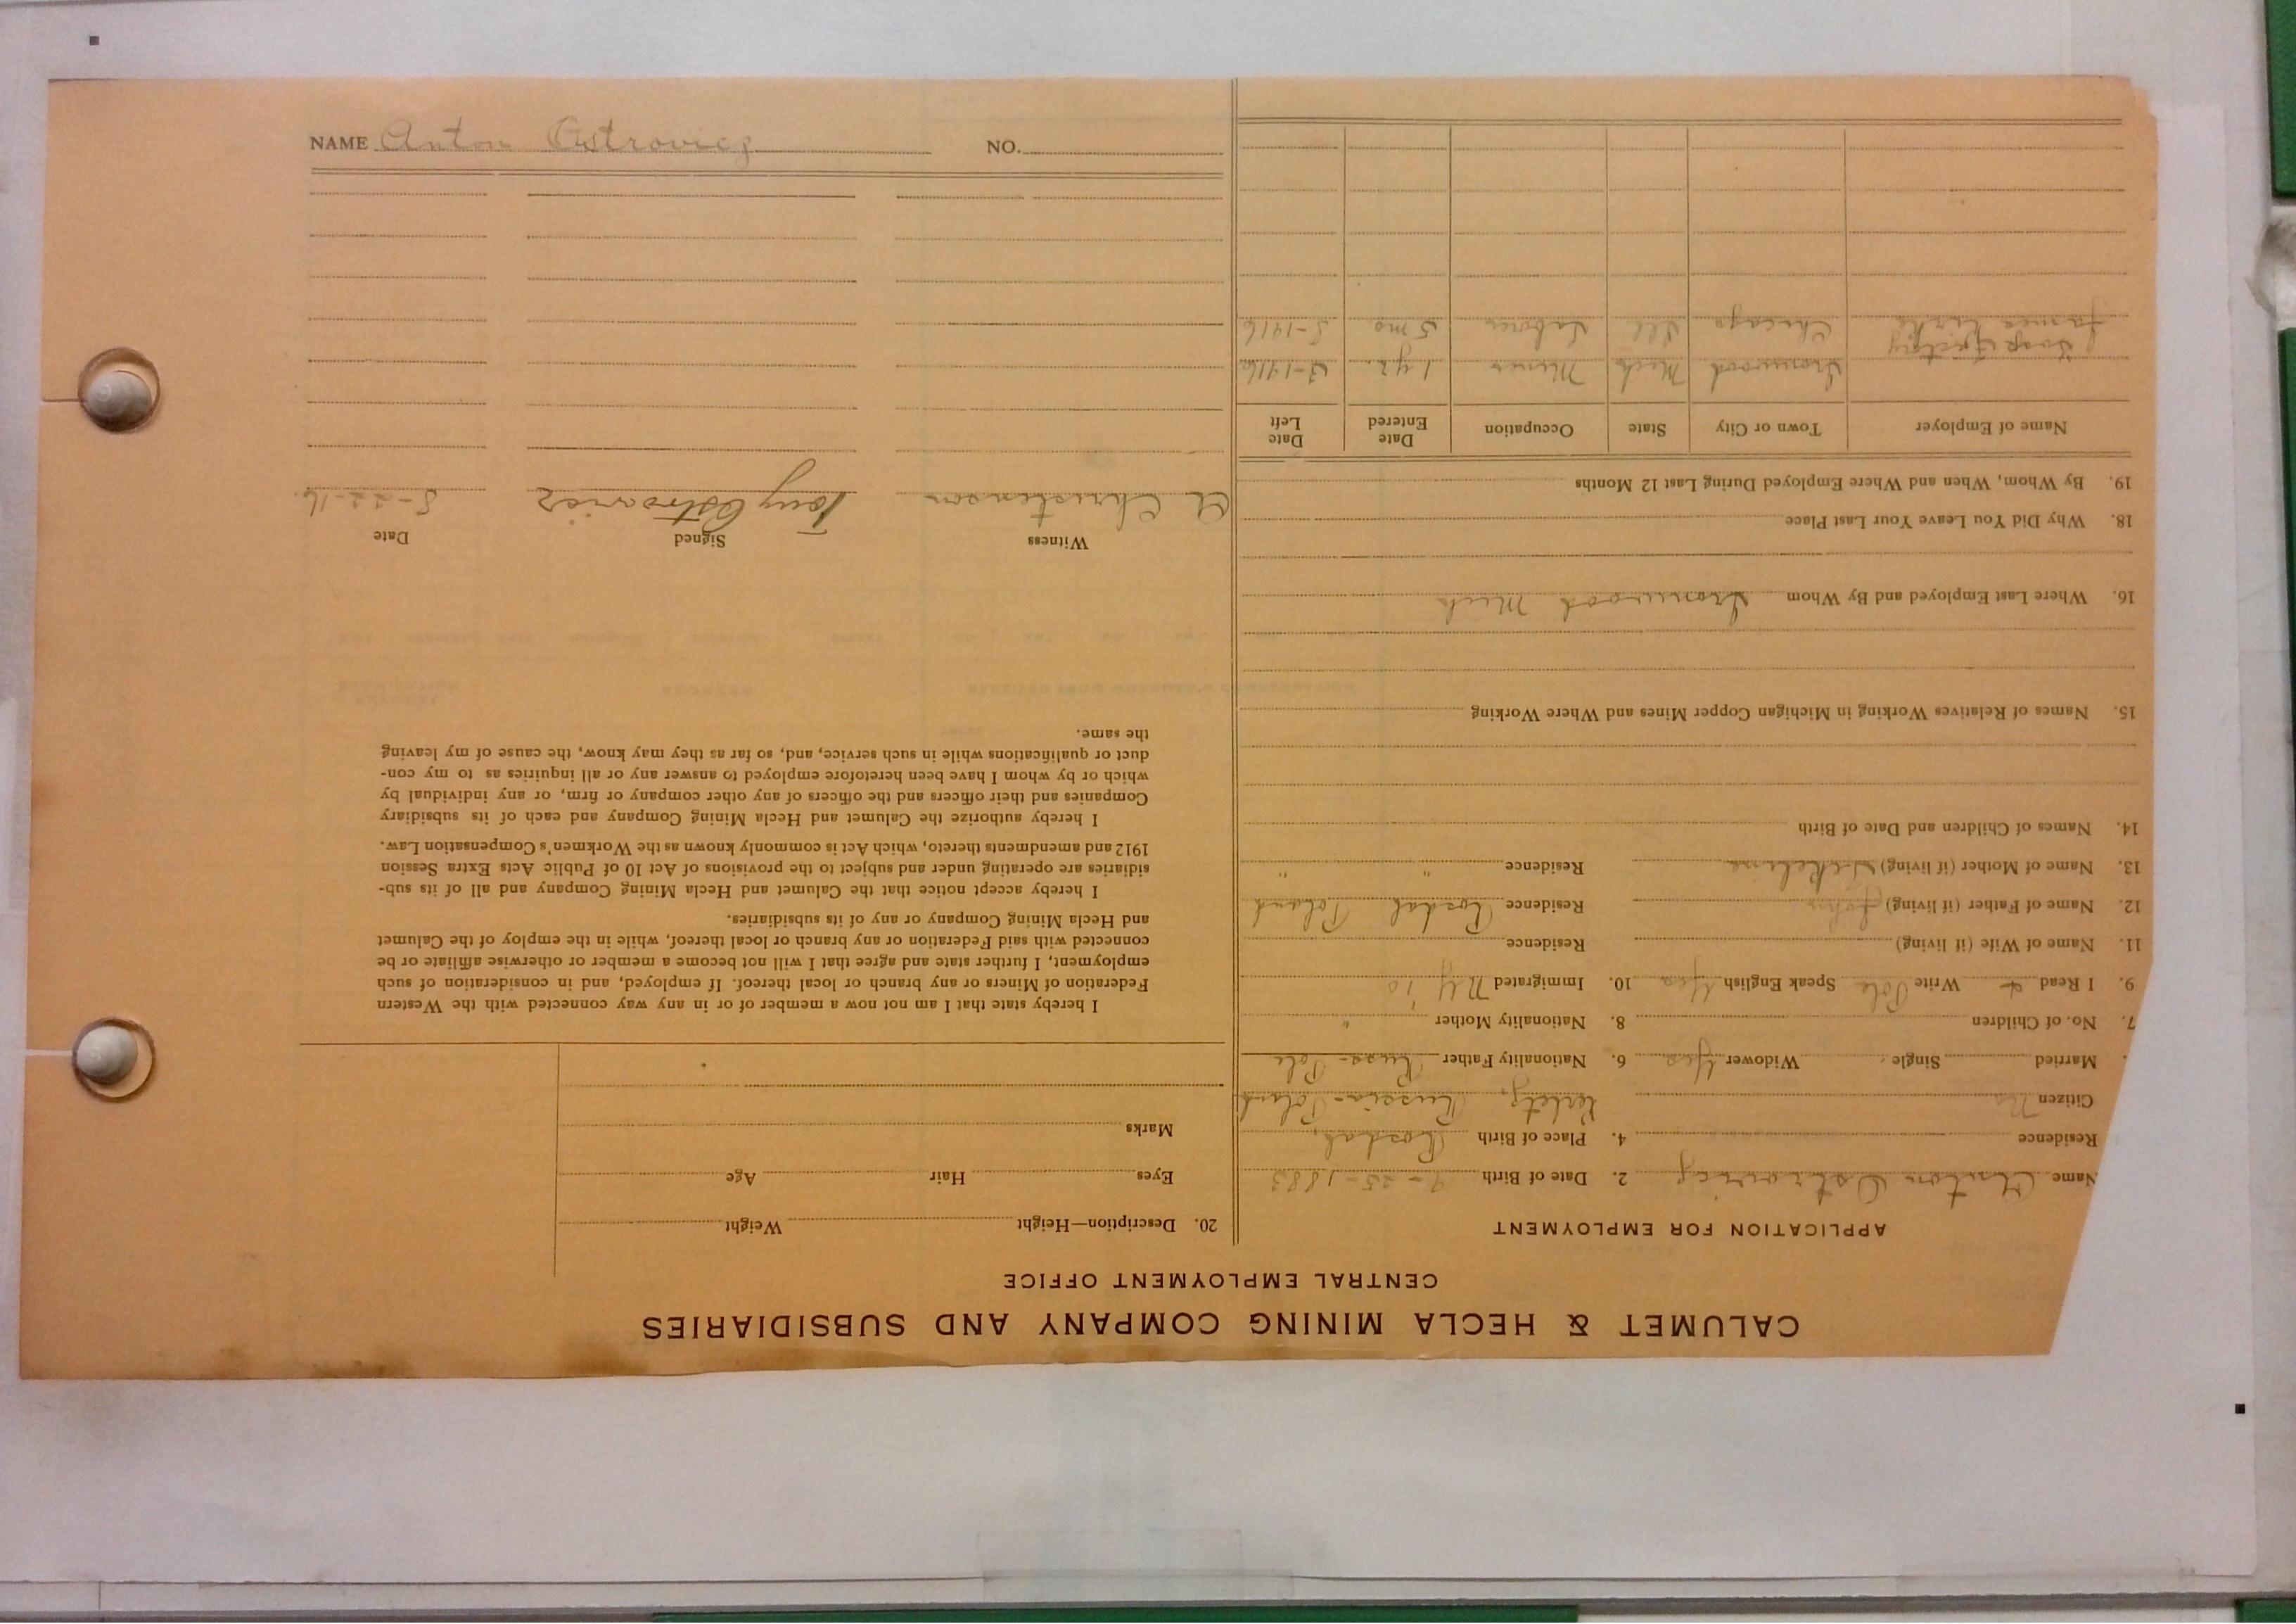 CALUMET & HECLA MINING COMPANY AND SUBSIDIARIES
CENTRAL EMPLOYMENT OFFICE
APPLICATION FOR EMPLOYMENT
Name Anton Ostrovicz 2. Date of Birth 9-25-1883
Residence 4. Place of Birth
Citizen No Russia-Poland
Married Single Widower Yes 6. Nationality Father Russ-Pole
7. No. of Children 8. Nationality Mother "
9. I Read & Write Pole Speak English Yes 10. Immigrated NY '10
11. Name of Wife (if living) Residence
12. Name of Father (if living) John Residence Poland
13. Name of Mother (if living) Residence " "
14. Names of Children and Date of Birth
15. Names of Relatives Working in Michigan Copper Mines and Where Working
16. Where Last Employed and By Whom Ironwood Mich
18. Why Did You Leave Your Last Place
19. By Whom, When and Where Employed During Last 12 Months
Name of Employer Town or City State Occupation Date Entered Date Left
Ironwood Mich Miner 1 yr. 3-1916
Soap Factory
James Kirke Chicago Ill Laborer 5 mo 5-1916
20. Description—Height Weight
Eyes Hair Age
Marks
I hereby state that I am not now a member of or in any way connected with the Western
Federation of Miners or any branch or local thereof. If employed, and in consideration of such
employment, I further state and agree that I will not become a member or otherwise affiliate or be
connected with said Federation or any branch or local thereof, while in the employ of the Calumet
and Hecla Mining Company or any of its subsidiaries.
I hereby accept notice that the Calumet and Hecla Mining Company and all of its sub-
sidiaries are operating under and subject to the provisions of Act 10 of Public Acts Extra Session
1912 and amendments thereto, which Act is commonly known as the Workmen's Compensation Law.
I hereby authorize the Calumet and Hecla Mining Company and each of its subsidiary
Companies and their officers and the officers of any other company or firm, or any individual by
which or by whom I have been heretofore employed to answer any or all inquiries as to my con-
duct or qualifications while in such service, and, so far as they may know, the cause of my leaving
the same.
Witness Signed Date
A Christenson Tony Ostrovicz 5-22-16.
NAME Anton Ostrovicz NO.